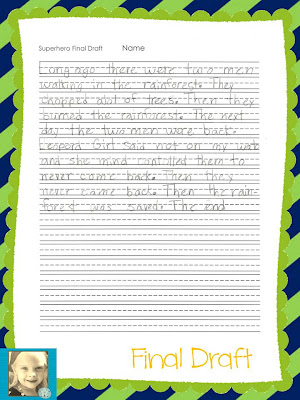 Superhero Final Draft Name
Long ago there were two men
walking in the rainforest. They
chopped alot of trees. Then they
burned the rainforest. The next
day the two men were back.
Leopard Girl said not on my watch
and she mind controlled them to
never come back. Then they
never came back. Then the rain-
forest was saved. The end
Final Draft